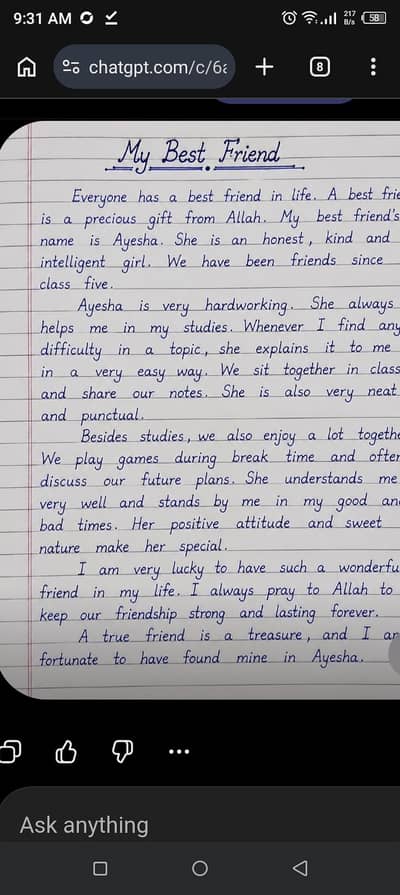 9:31 AM
217 B/s
58
chatgpt.com/c/6a
8
My Best Friend
Everyone has a best friend in life. A best frie
is a precious gift from Allah. My best friend's
name is Ayesha. She is an honest, kind and
intelligent girl. We have been friends since
class five.
Ayesha is very hardworking. She always
helps me in my studies. Whenever I find any
difficulty in a topic, she explains it to me
in a very easy way. We sit together in class
and share our notes. She is also very neat
and punctual.
Besides studies, we also enjoy a lot togethe
We play games during break time and often
discuss our future plans. She understands me
very well and stands by me in my good an
bad times. Her positive attitude and sweet
nature make her special.
I am very lucky to have such a wonderfu
friend in my life. I always pray to Allah to
keep our friendship strong and lasting forever.
A true friend is a treasure, and I am
fortunate to have found mine in Ayesha.
Ask anything